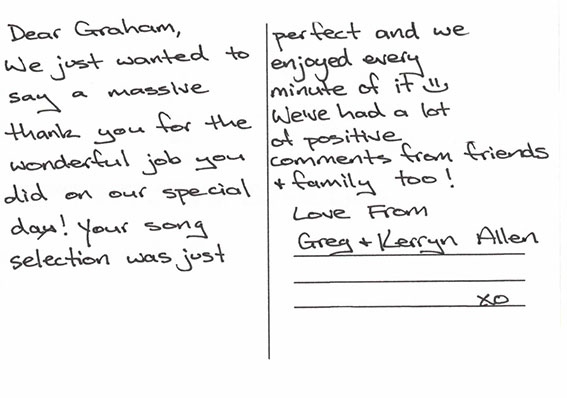 Dear Graham,
We just wanted to
say a massive
thank you for the
wonderful job you
did on our special
day! Your song
selection was just
perfect and we
enjoyed every
minute of it
Weve had a lot
of positive
comments from friends
+ family too!
Love From
Greg + Kerryn Allen
xo